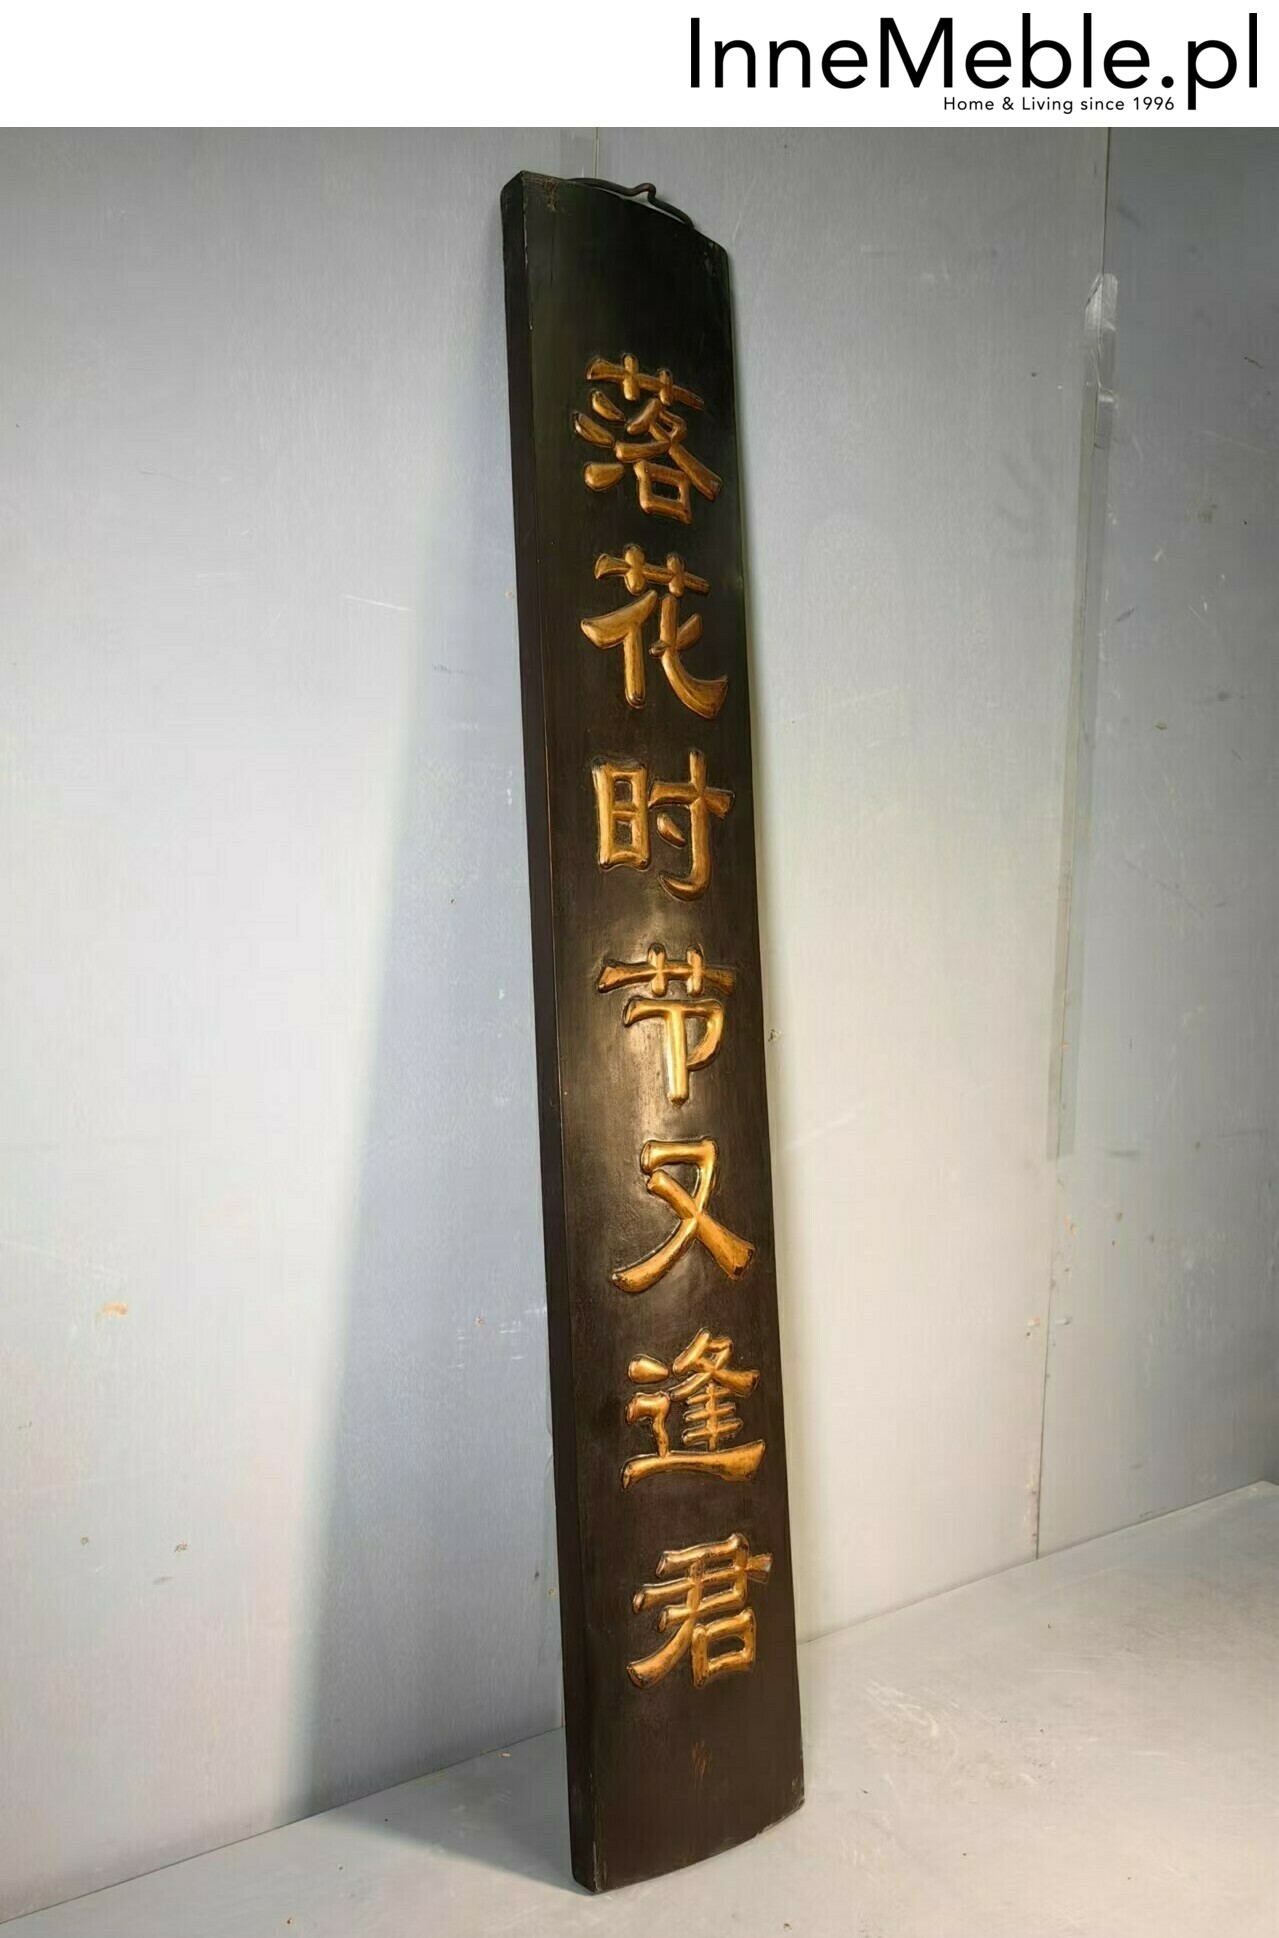 InneMeble.pl
Home & Living since 1996
落花时节又逢君